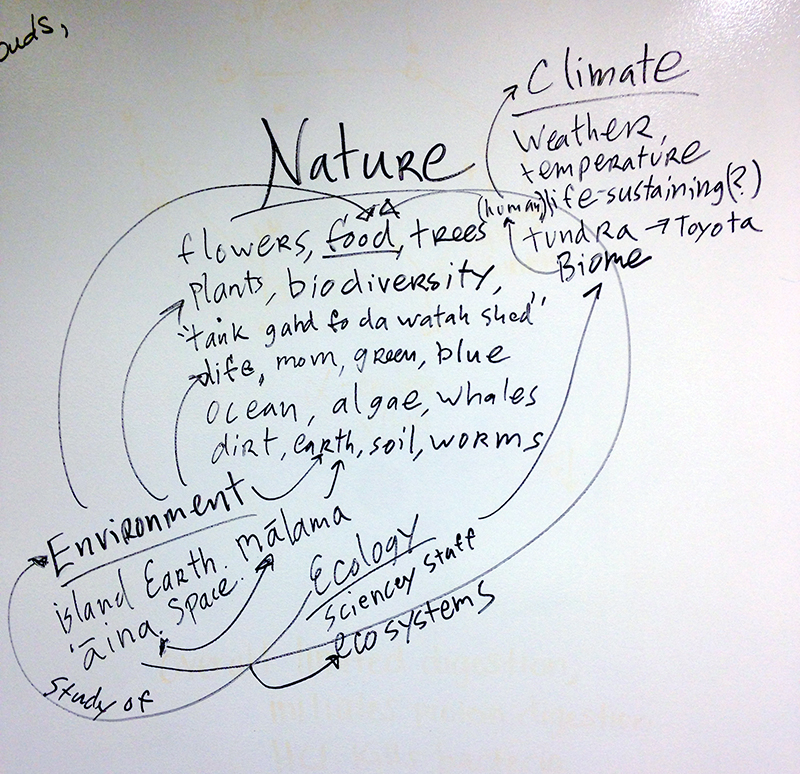 ouds,
Climate
Weather,
temperature
(human) life-sustaining(?)
tundra → Toyota
Biome
Nature
flowers, food, trees
plants, biodiversity,
"tank gahd fo da watah shed"
life, mom, green, blue
ocean, algae, whales
dirt, earth, soil, worms
Environment
island Earth. mālama
'āina. Space.
Study of
Ecology
sciencey staff
ecosystems